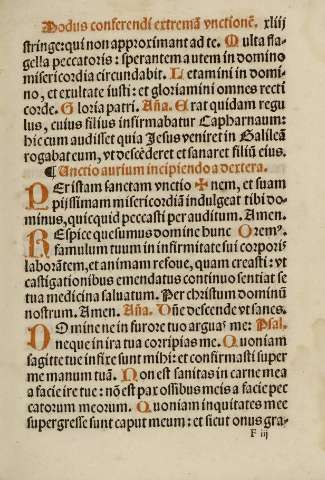 Modus conferendi extremā vnctionē. xliij
stringe: qui non approximant ad te. Multa fla-
gella peccatoris: sperantem autem in domino
misericordia circundabit. Letamini in domi-
no, et exultate iusti: et gloriamini omnes recti
corde. Gloria patri. Aña. Erat quidam regu-
lus, cuius filius infirmabatur Capharnaum:
hic cum audisset quia Jesus veniret in Galileā
rogabat eum, vt descēderet et sanaret filiū eius.
¶ Vnctio aurium incipiendo a dextera.
PEr istam sanctam vnctio ✠ nem, et suam
piissimam misericordiā indulgeat tibi do-
minus, quicquid peccasti per auditum. Amen.
REspice quesumus domine hunc Oremꝰ.
famulum tuum in infirmitate sui corporis
laborātem, et animam refoue, quam creasti: vt
castigationibus emendatus continuo sentiat se
tua medicina saluatum. Per christum dominū
nostrum. Amen. Aña. Dñe descende vt sanes.
DOmine ne in furore tuo arguas me: Psal.
neque in ira tua corripias me. Quoniam
sagitte tue infixe sunt mihi: et confirmasti super
me manum tuā. Non est sanitas in carne mea
a facie ire tue: nō est pax ossibus meis a facie pec
catorum meorum. Quoniam iniquitates mee
supergresse sunt caput meum: et sicut onus gra-
F iij